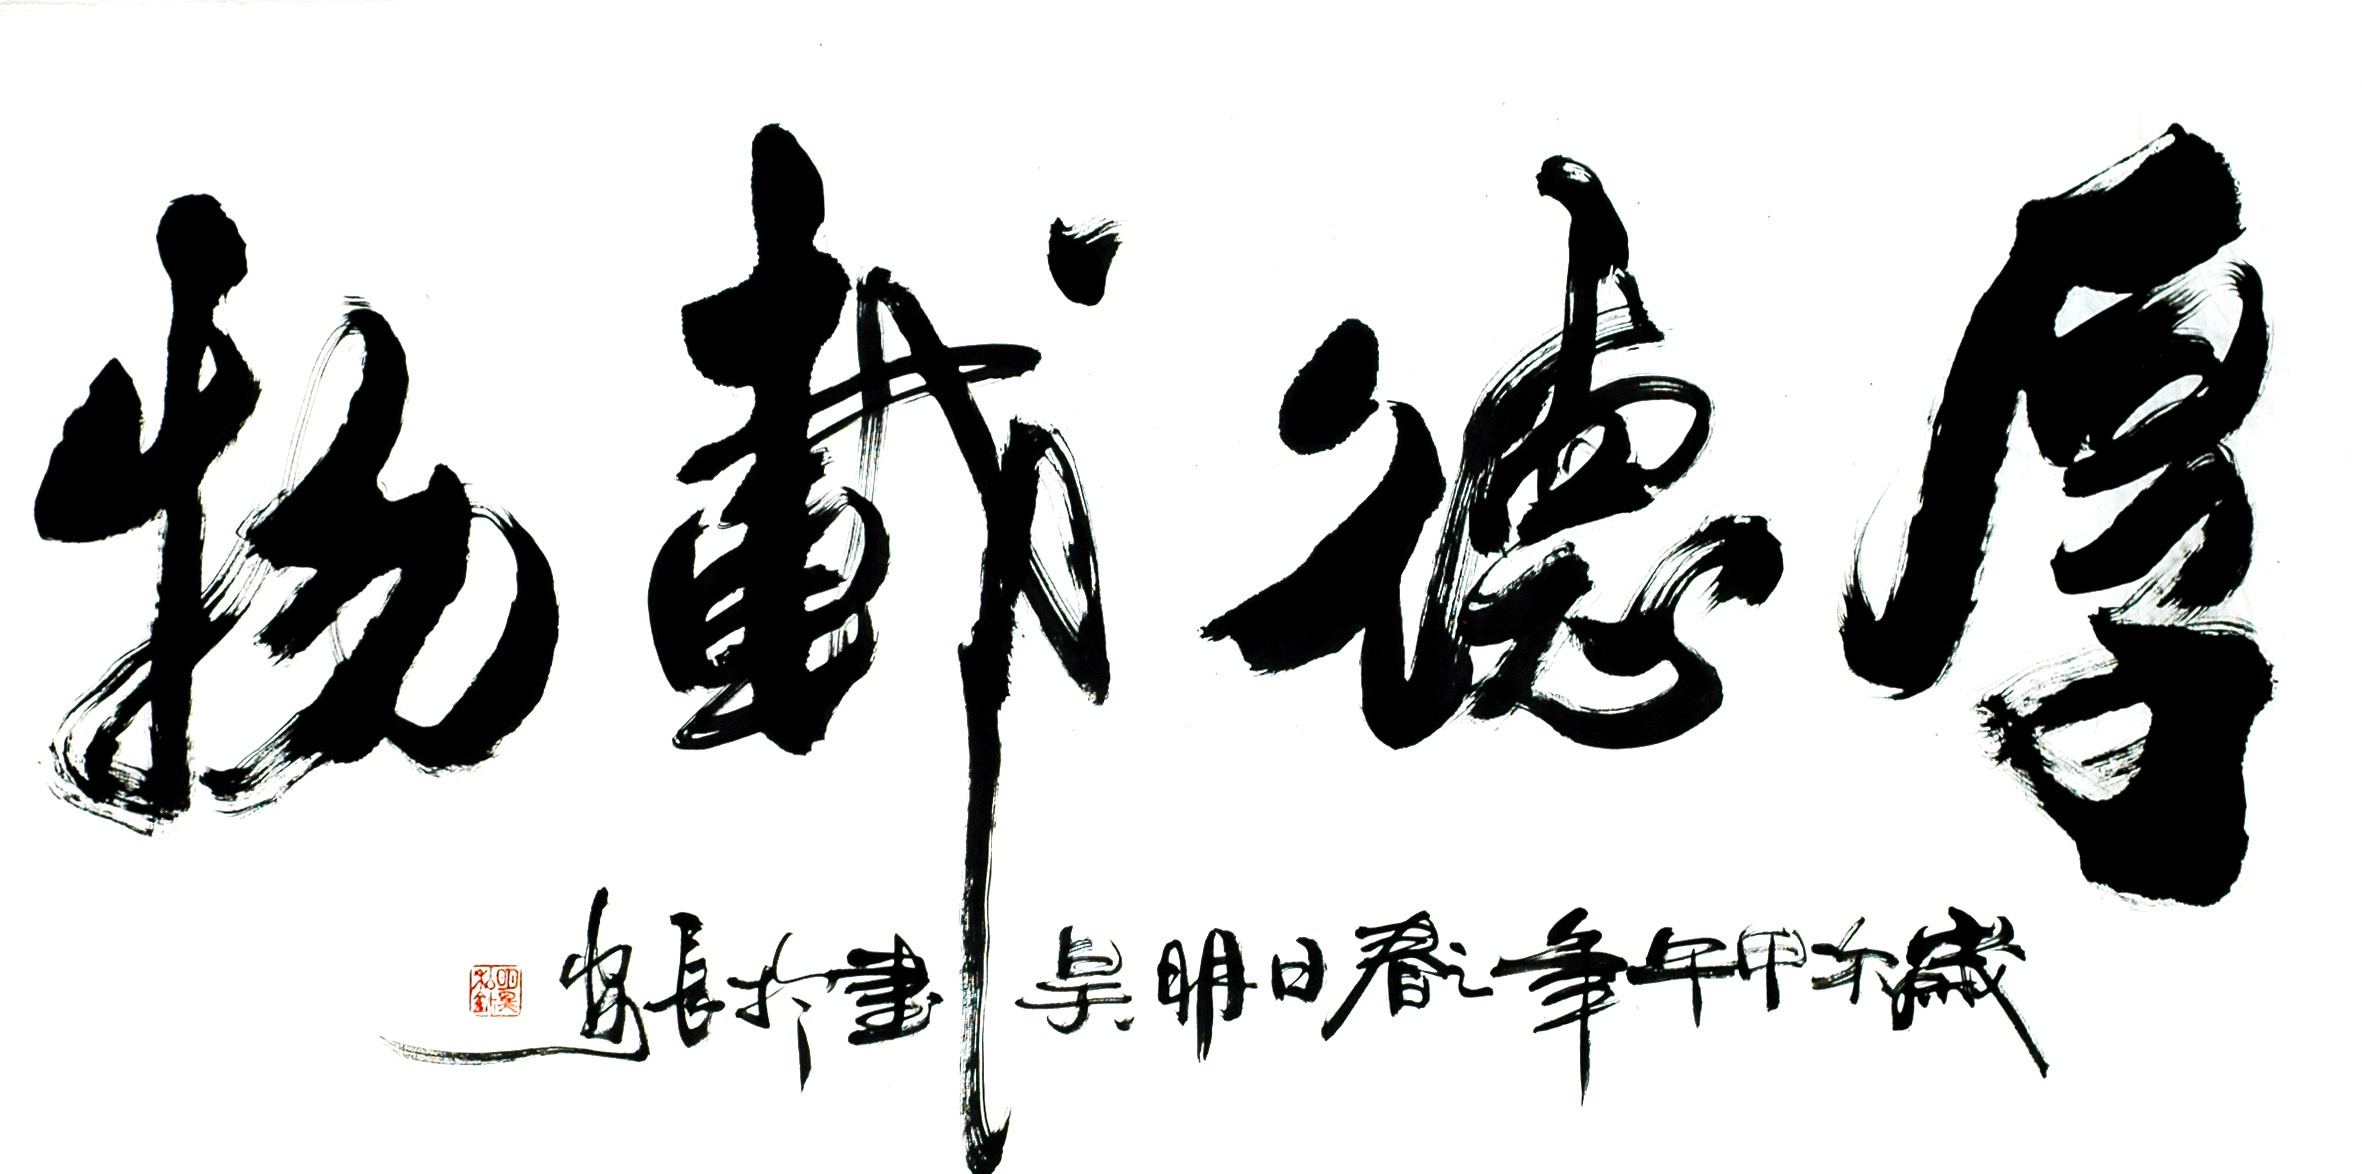 厚德載物
歲次甲午年之春日明昊書於長安